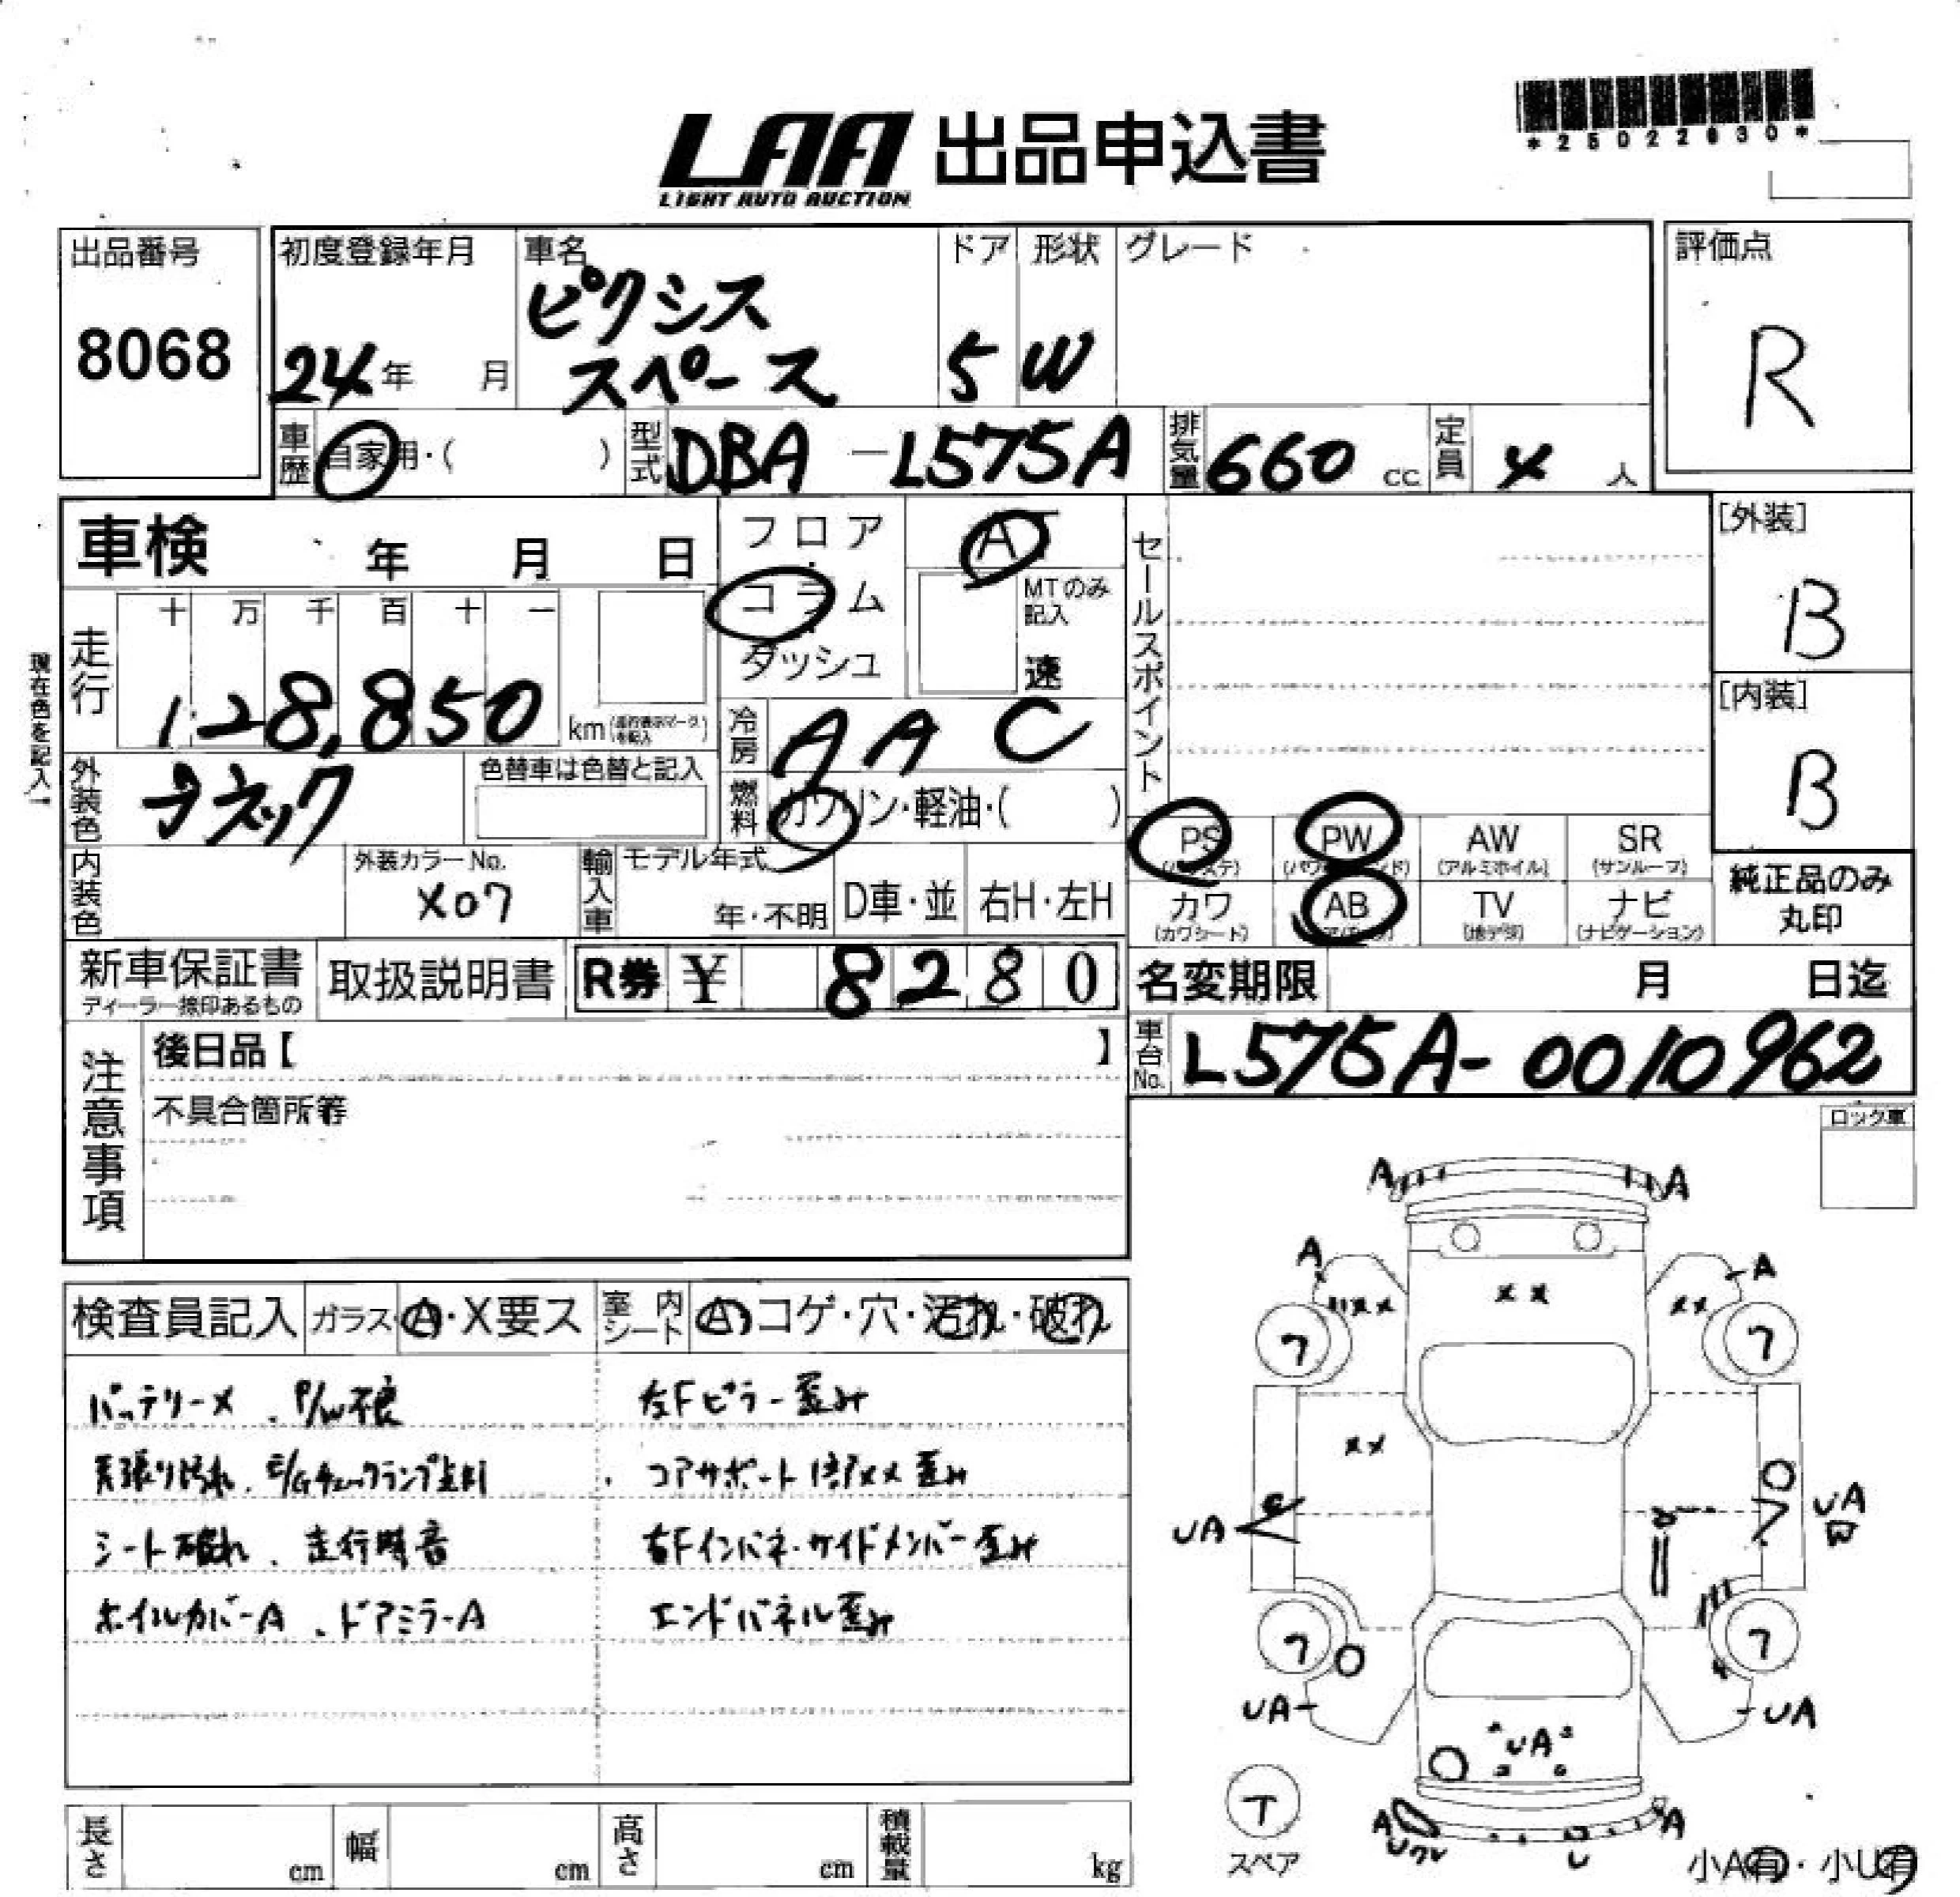 LAA 出品申込書
LIGHT AUTO AUCTION
*25022630*
出品番号
8068
初度登録年月
24年 月
車名
ピクシス
スペース
ドア
5
形状
W
グレード
評価点
R
車歴 自家用・( )
型式 DBA-L575A
排気量 660 cc
定員 4 人
車検 年 月 日
フロア
コラム
ダッシュ
AT
MTのみ
記入
速
セールスポイント
[外装]
B
[内装]
B
現在色を記入
走行
十 万 千 百 十 一
128,850 km
冷房 AAC
外装色 ブラック
色替車は色替と記入
燃料 ガソリン・軽油・( )
内装色
外装カラーNo.
X07
輸入車
モデル年式
年・不明
D車・並
右H・左H
PS
PW
(パワーウインド)
AW
(アルミホイル)
SR
(サンルーフ)
カワ
(カワシート)
AB
(エアバッグ)
TV
(地デジ)
ナビ
(ナビゲーション)
純正品のみ
丸印
新車保証書
ディーラー捺印あるもの
取扱説明書
R券 ¥ 8280
名変期限 月 日迄
車台No. L575A-0010962
注意事項
後日品【 】
不具合箇所等
ロック車
検査員記入
ガラス A・X要ス
室内シート A コゲ・穴・汚れ・破れ
バッテリーX、P/W不良
天張り汚れ、E/Gチェックランプ点灯
シート破れ、走行時音
ホイルカバーA、ドアミラーA
左Fピラー歪み
コアサポート修アXX歪み
右Fインパネ・サイドメンバー歪み
エンドパネル歪み
A A
A A
XX XX XX
7 7
XX
UA
UA
7 7
UA UA
UA
T
スペア
A A
U
小A有・小U有
長さ cm
幅 cm
高さ cm
積載量 kg